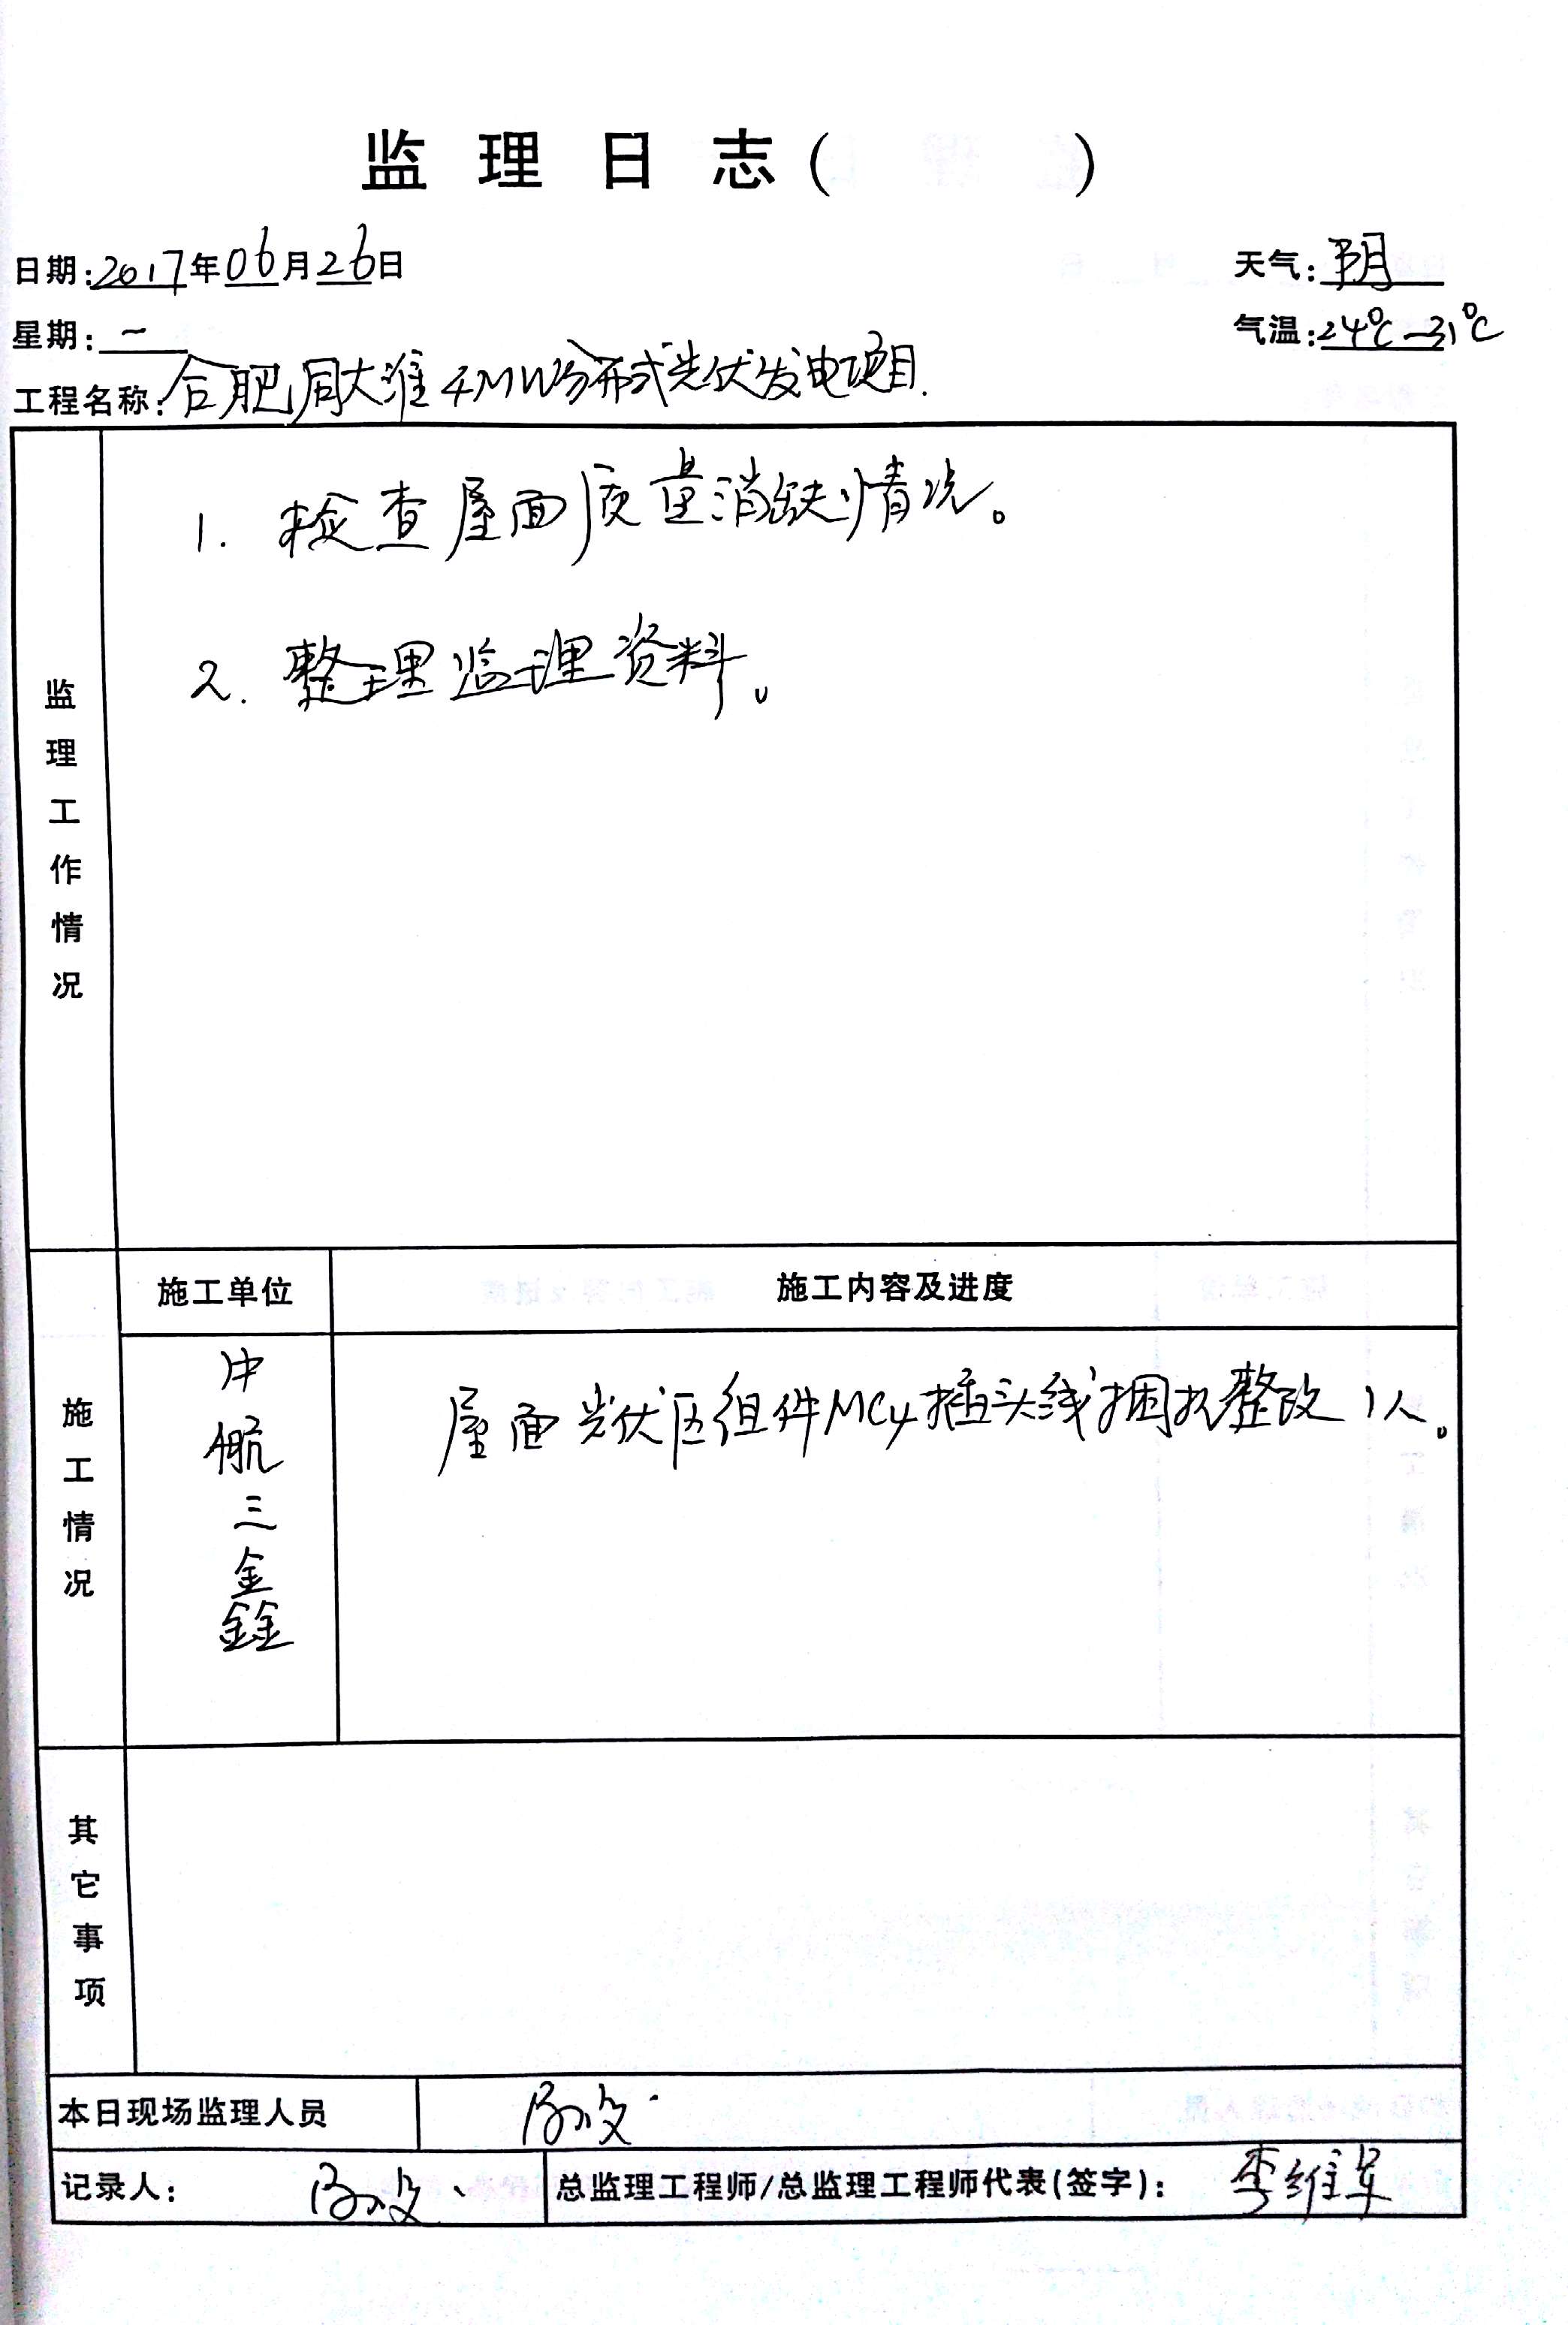 监理日志( )
日期:2017年06月26日
天气:阴
星期:一
气温:24℃-31℃
工程名称:合肥周大淮4MW分布式光伏发电项目.
监理工作情况
1. 检查屋面质量消缺情况。
2. 整理监理资料。
施工情况
施工单位
施工内容及进度
中航三鑫
屋面光伏区组件MC4插头线捆扎整改1人。
其它事项
本日现场监理人员
记录人:
总监理工程师/总监理工程师代表(签字): 李维军